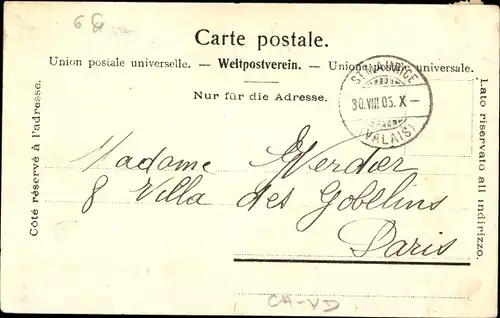 6
Carte postale.
Union postale universelle. — Weltpostverein. — Unione postale universale.
Nur für die Adresse.
Côté réservé à l'adresse.
Lato riservato all indirizzo.
ST MAURICE
30.VIII 05. X–
(VALAIS)
Madame Verdier
8 Villa des Gobelins
Paris
CA-VD